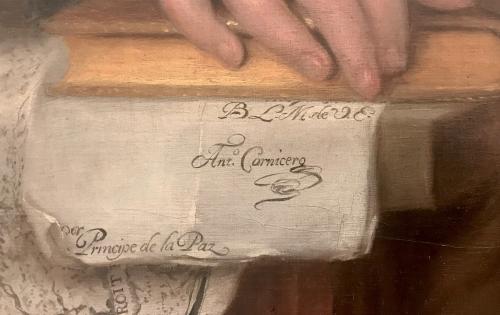 B. L. M. de V. E.
Ant.º Carnicero
Sor Principe de la Paz
ROIT